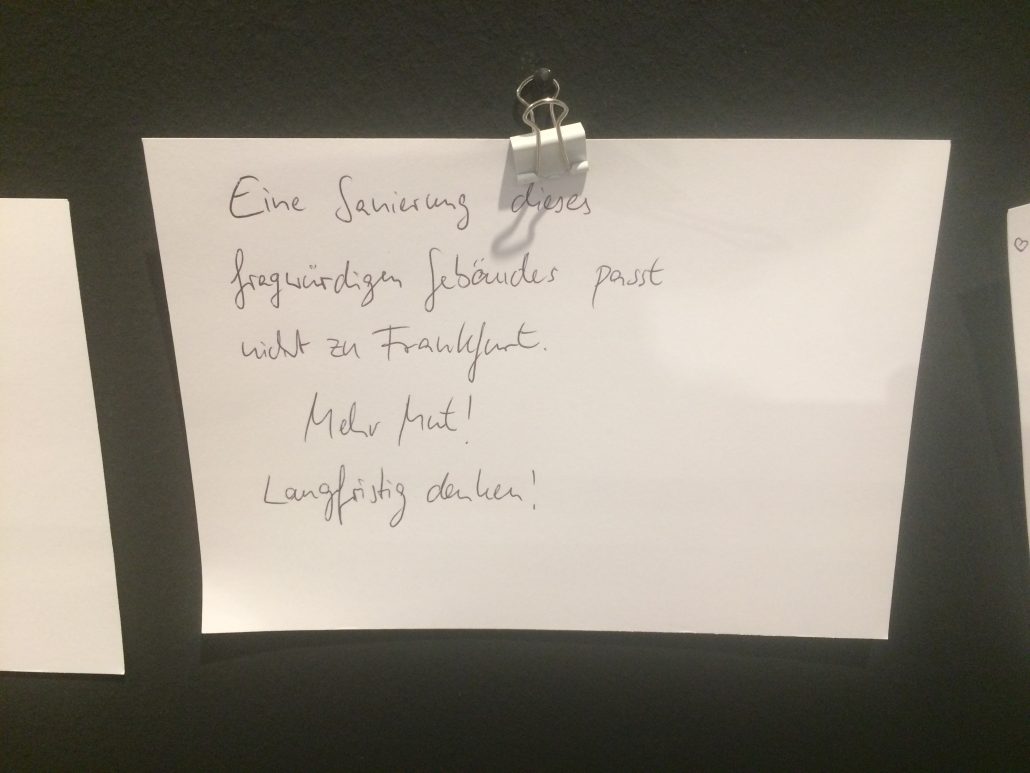 Eine Sanierung dieses
fragwürdigen Gebäudes passt
nicht zu Frankfurt.
Mehr Mut!
Langfristig denken!